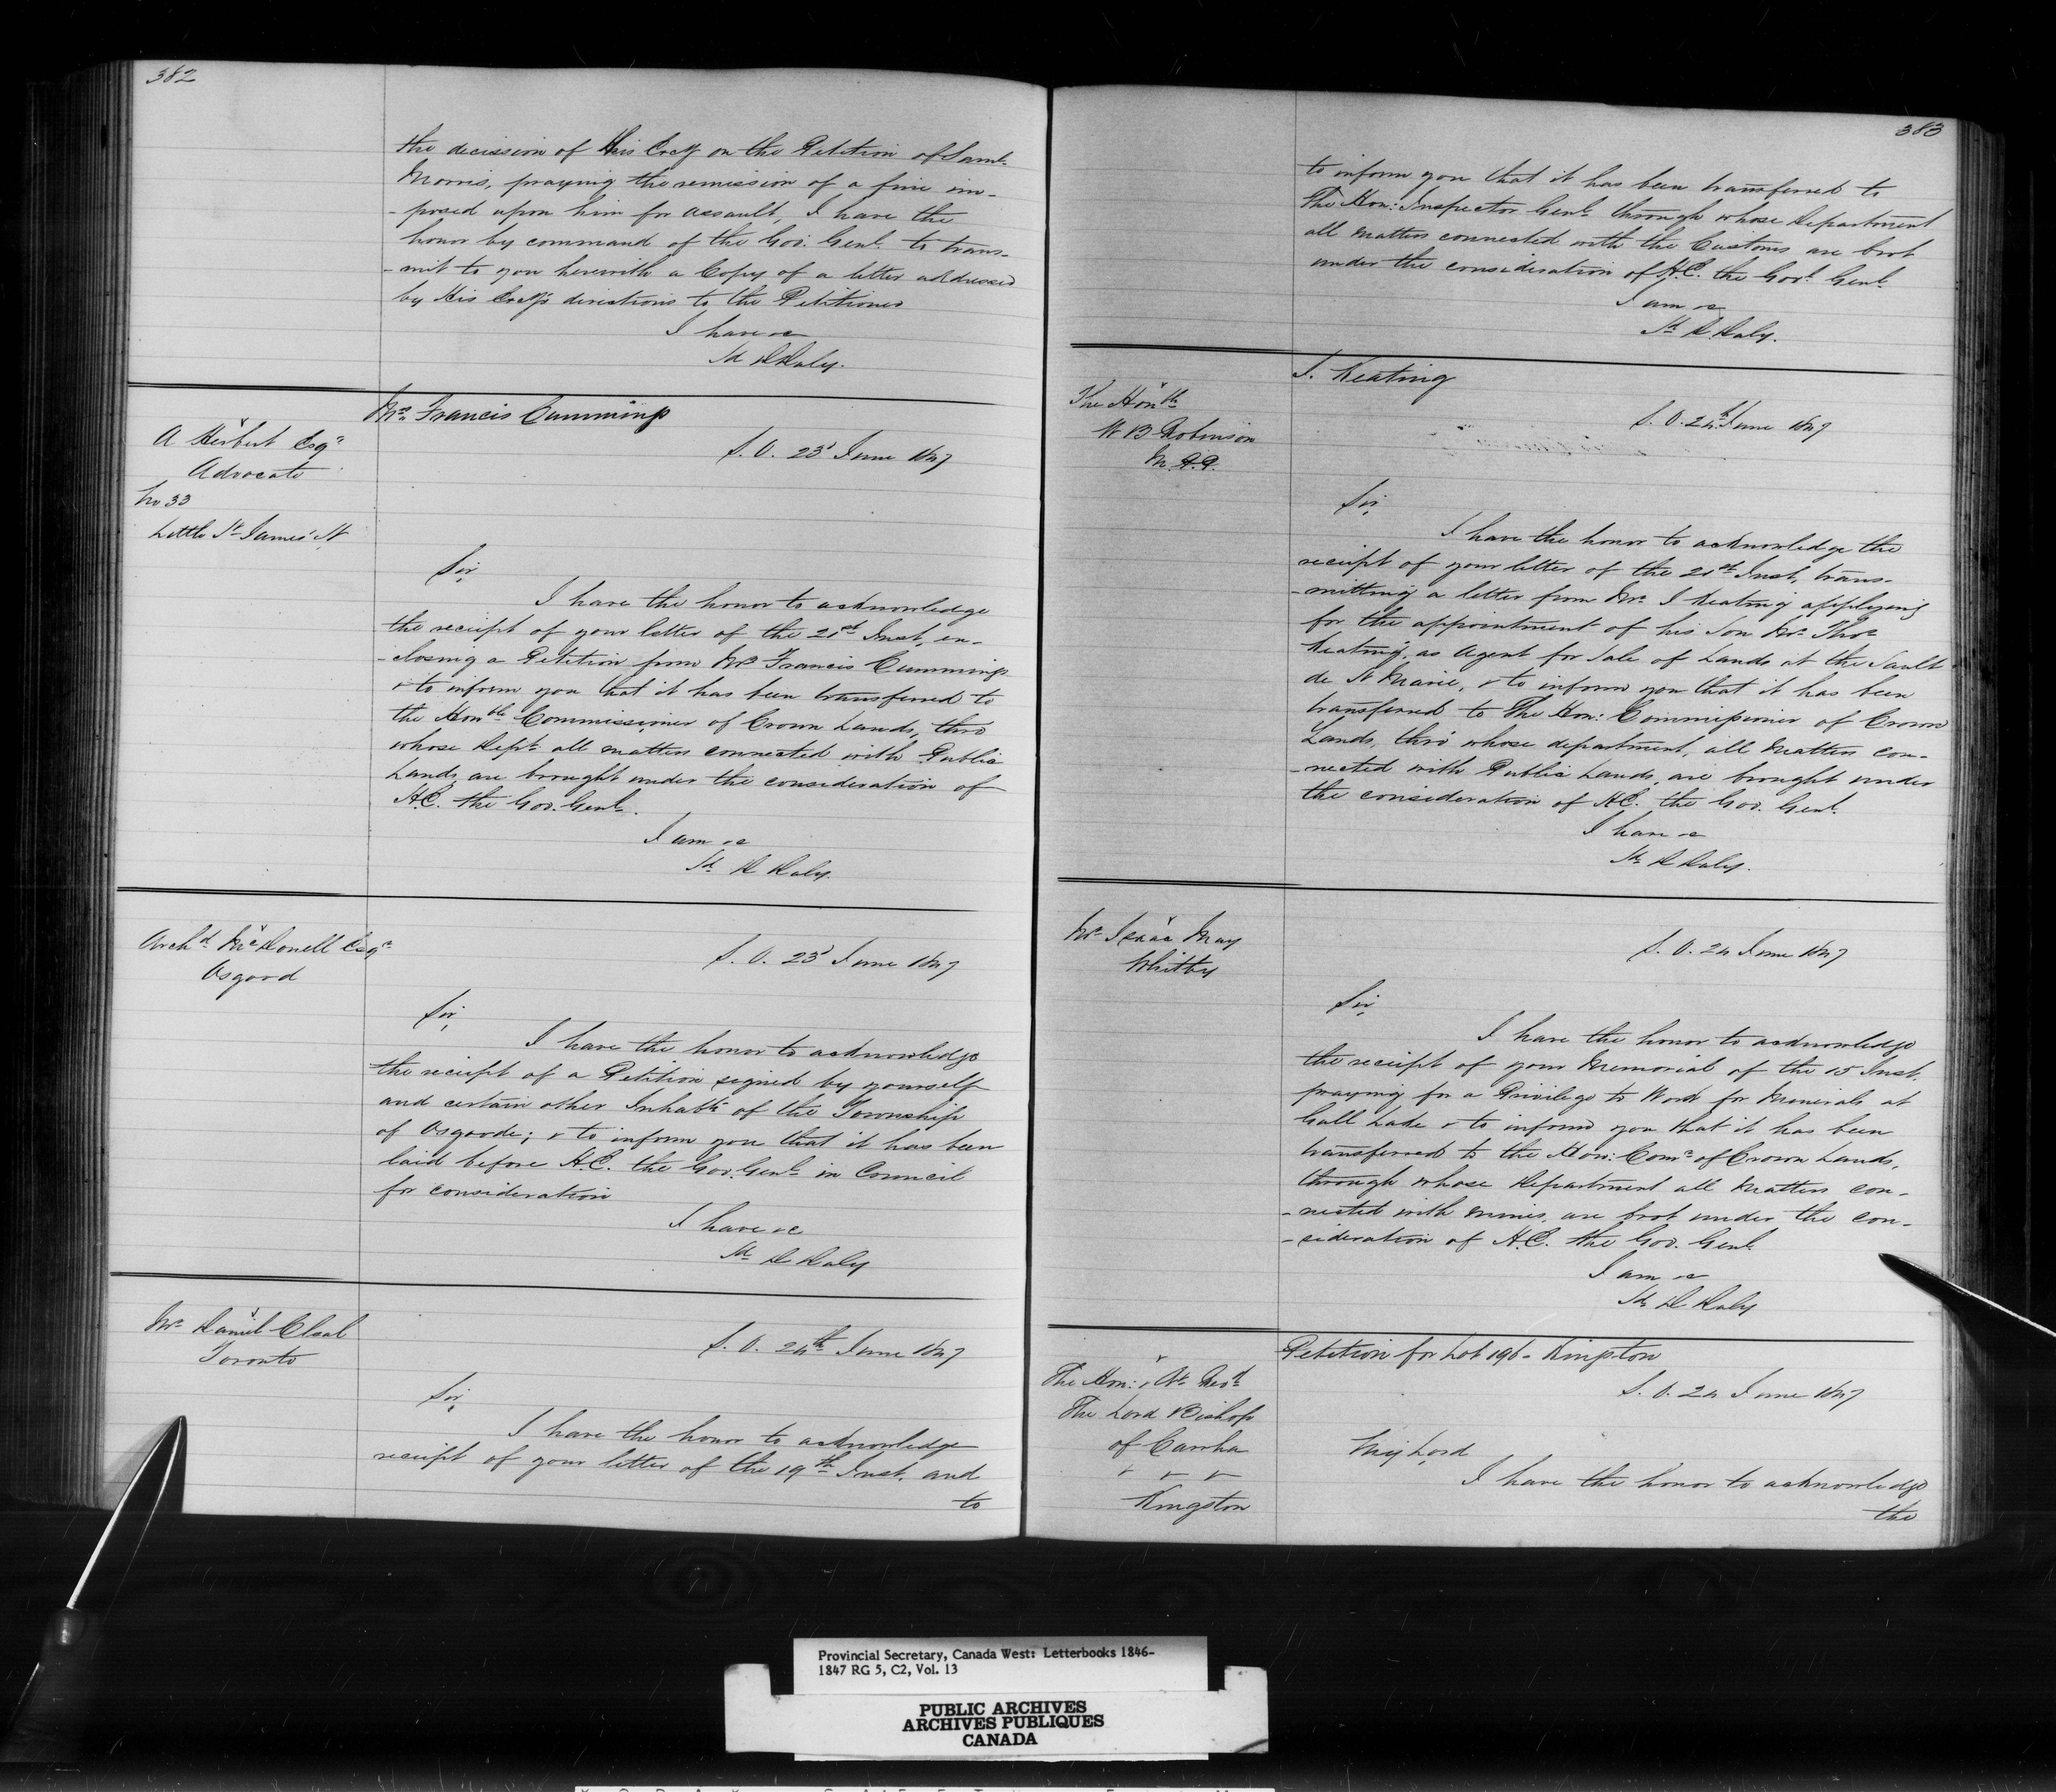 382
the decission of His Excy on the Petition of Saml
Morris, praying the remission of a fine im-
-posed upon him for assault, I have the
honor by command of the Gov. Genl. to trans-
-mit to you herewith a Copy of a letter addressed
by His Excy's directions to the Petitioner
I have &c
Sd D Daly.
Mrs Francis Cummings
A Herbert Esqr
Advocate
No 33
Little St James' St
S. O. 23d June 1847
Sir,
I have the honor to acknowledge
the receipt of your letter of the 21st Inst, en-
-closing a Petition from Mrs Francis Cummings
& to inform you that it has been transferred to
the Honble Commissioner of Crown Lands, thro
whose Dept. all matters connected with Public
Lands, are brought under the consideration of
H.E. the Gov. Genl.
I am &c
Sd D Daly.
Archd McDonell Esqr
Osgood
S. O. 23d June 1847
Sir,
I have the honor to acknowledge
the receipt of a Petition signed by yourself
and certain other Inhabts of the Township
of Osgoode; & to inform you that it has been
laid before H.E. the Gov. Genl. in Council
for consideration
I have &c
Sd D Daly
Mr Daniel
Toronto
S. O. 24th June 1847
Sir,
I have the honor to acknowledge
receipt of your letter of the 19th Inst. and
to
383
to inform you that it has been transferred to
The Hon: Inspector Genl. through whose Department
all matters connected with the Customs are brot
under the consideration of H.E. the Govr. Genl.
I am &c
Sd D Daly.
I. Keating
The Honble
W B Robinson
M.P.P.
S. O. 24th June 1847
Sir,
I have the honor to acknowledge the
receipt of your letter of the 21st Inst, trans-
-mitting a letter from Mr I Keating applying
for the appointment of his Son Mr Thos
Keating, as Agent for Sale of Lands at the Sault
de St Marie, & to inform you that it has been
transferred to The Hon: Commissioner of Crown
Lands, thro' whose department, all matters con-
-nected with Public Lands, are brought under
the consideration of H.E. the Gov. Genl.
I have &c
Sd D Daly.
Mr Isaac May
Whitby
S. O. 24 June 1847
Sir,
I have the honor to acknowledge
the receipt of your Memorial of the 15 Inst.
praying for a Privilege to Work for Minerals at
Gull Lake & to inform you that it has been
transferred to the Hon: Comr of Crown Lands,
through whose Department all matters con-
-nected with mines, are brot under the con-
-sideration of H.E. the Gov. Genl.
I am &c
Sd D Daly
Petition for Lot 196 - Kingston
The Hon: & Rt Revd
The Lord Bishop
of Carrha
Kingston
S. O. 24 June 1847
My Lord
I have the honor to acknowledge
the
Provincial Secretary, Canada West: Letterbooks 1846-
1847 RG 5, C2, Vol. 13
PUBLIC ARCHIVES
ARCHIVES PUBLIQUES
CANADA